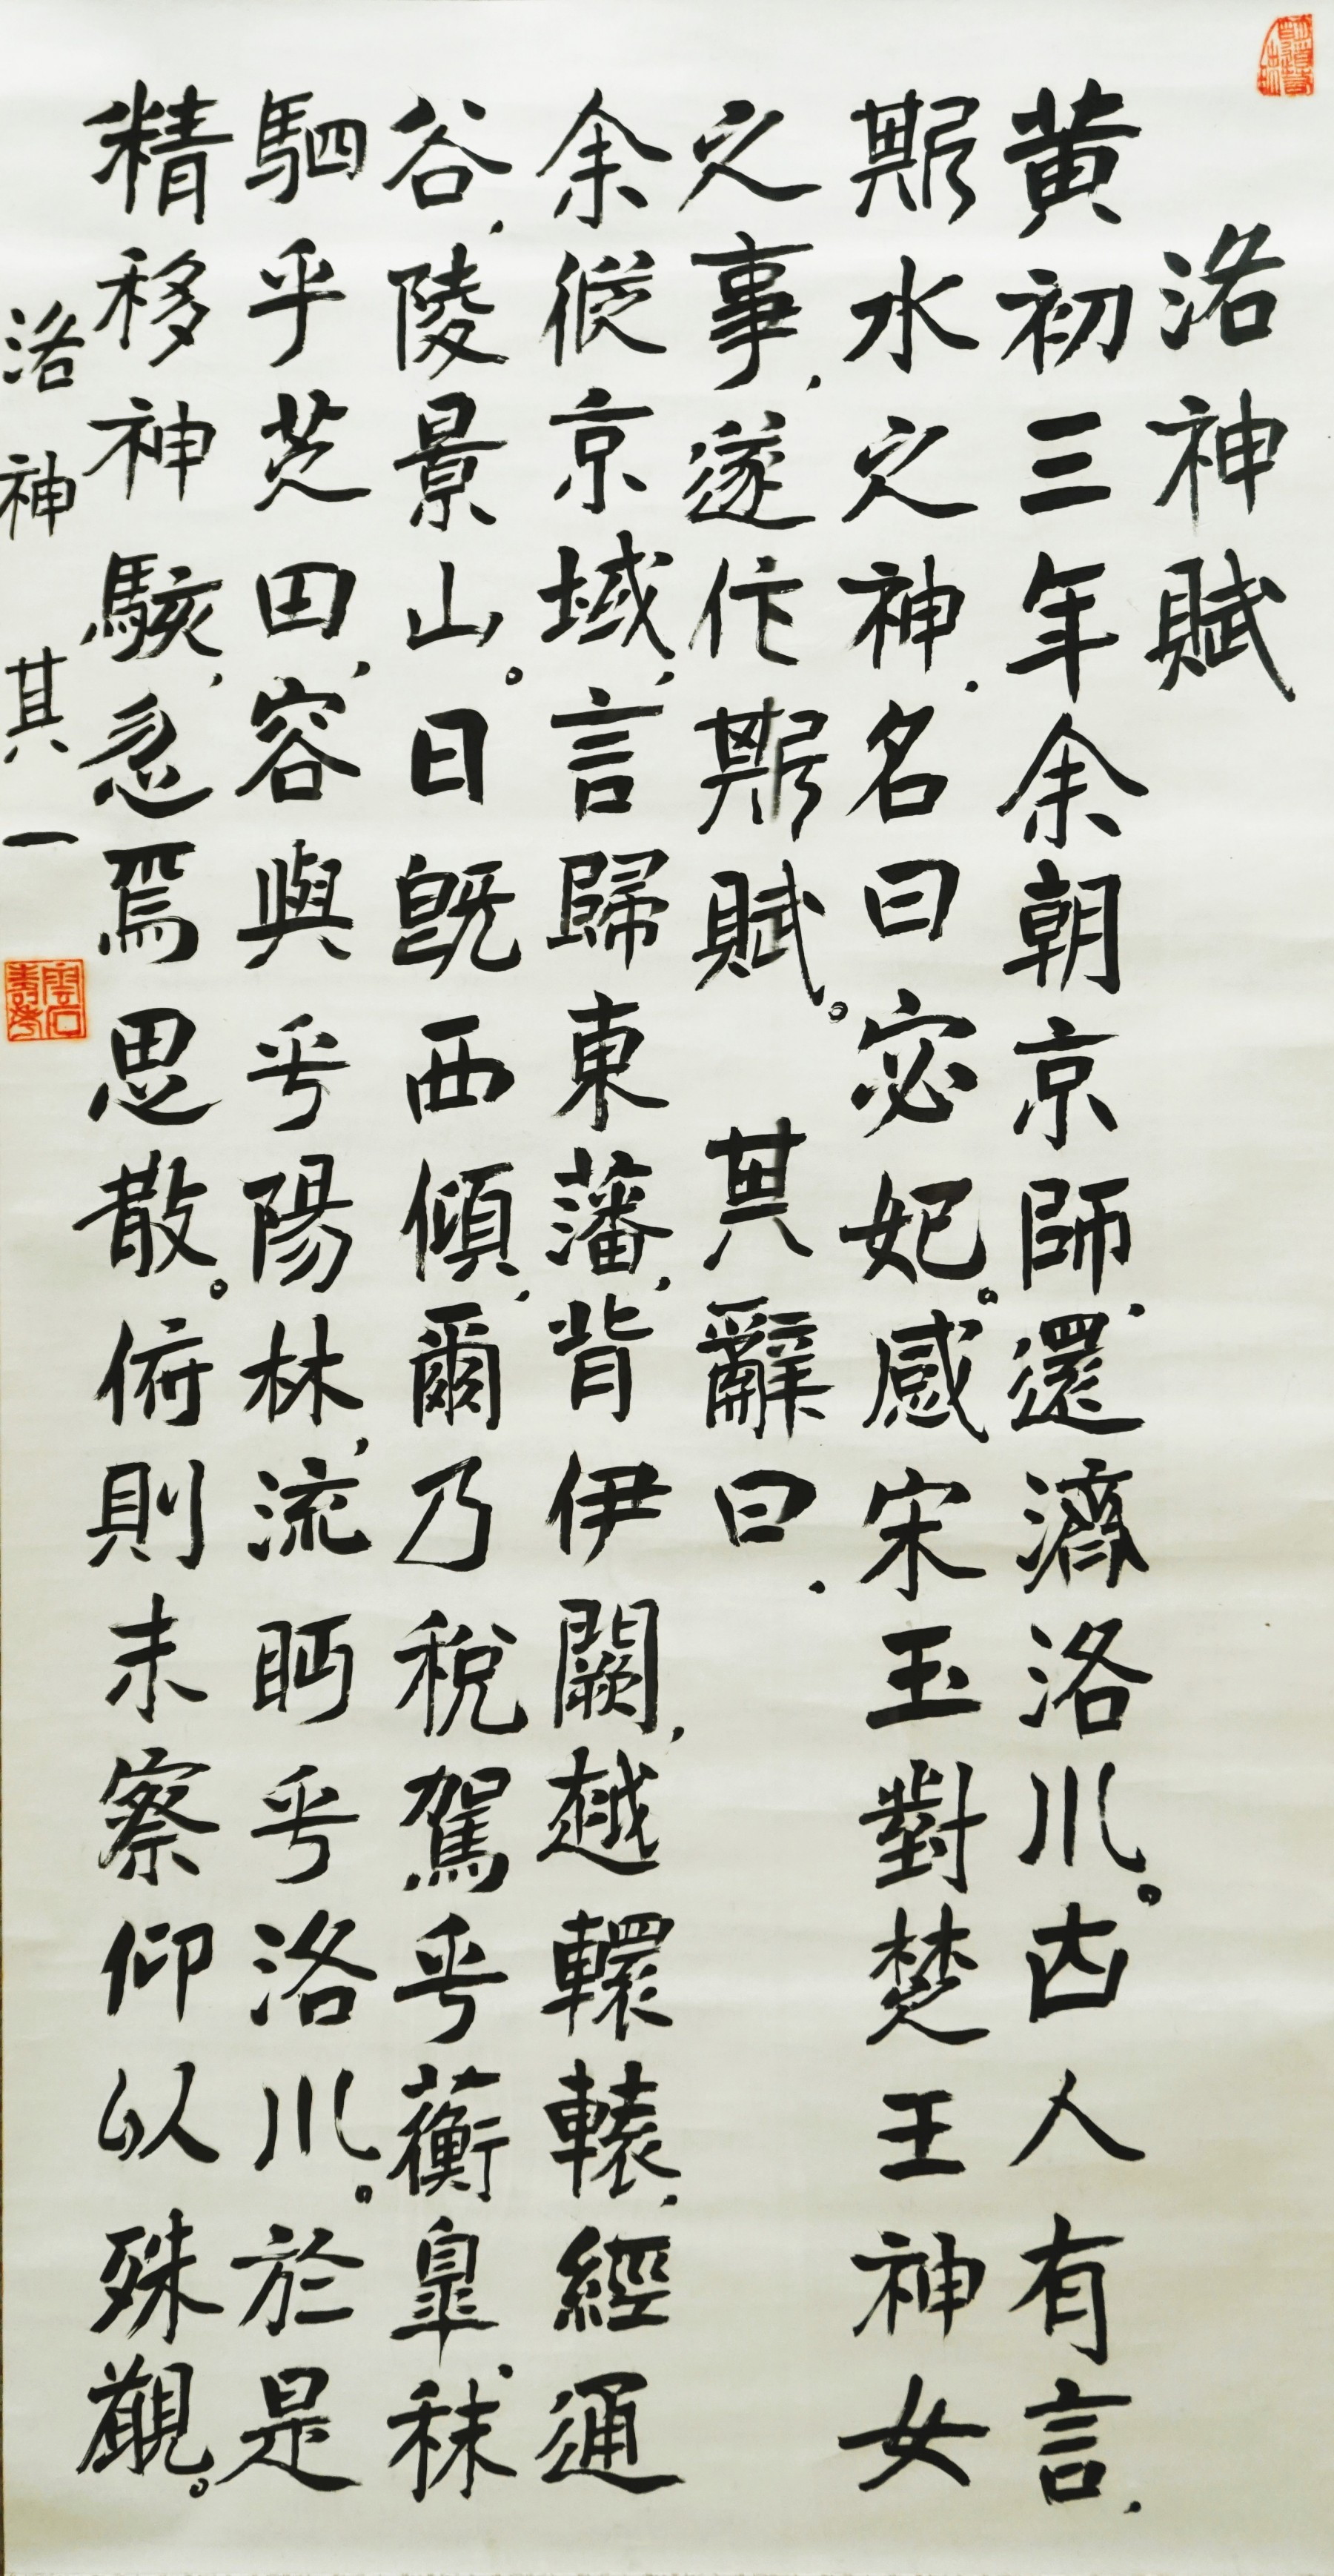 洛神賦
黄初三年余朝京師,還濟洛川。古人有言,
斯水之神,名曰宓妃。感宋玉對楚王神女
之事,遂作斯賦。其辭曰,
余從京域,言歸東藩,背伊闕,越轘轅,經通
谷,陵景山。日既西傾,爾乃稅駕乎蘅皋,秣
駟乎芝田,容與乎陽林,流眄乎洛川。於是
精移神駭,忽焉思散。俯則未察仰以殊觀。
洛神其一